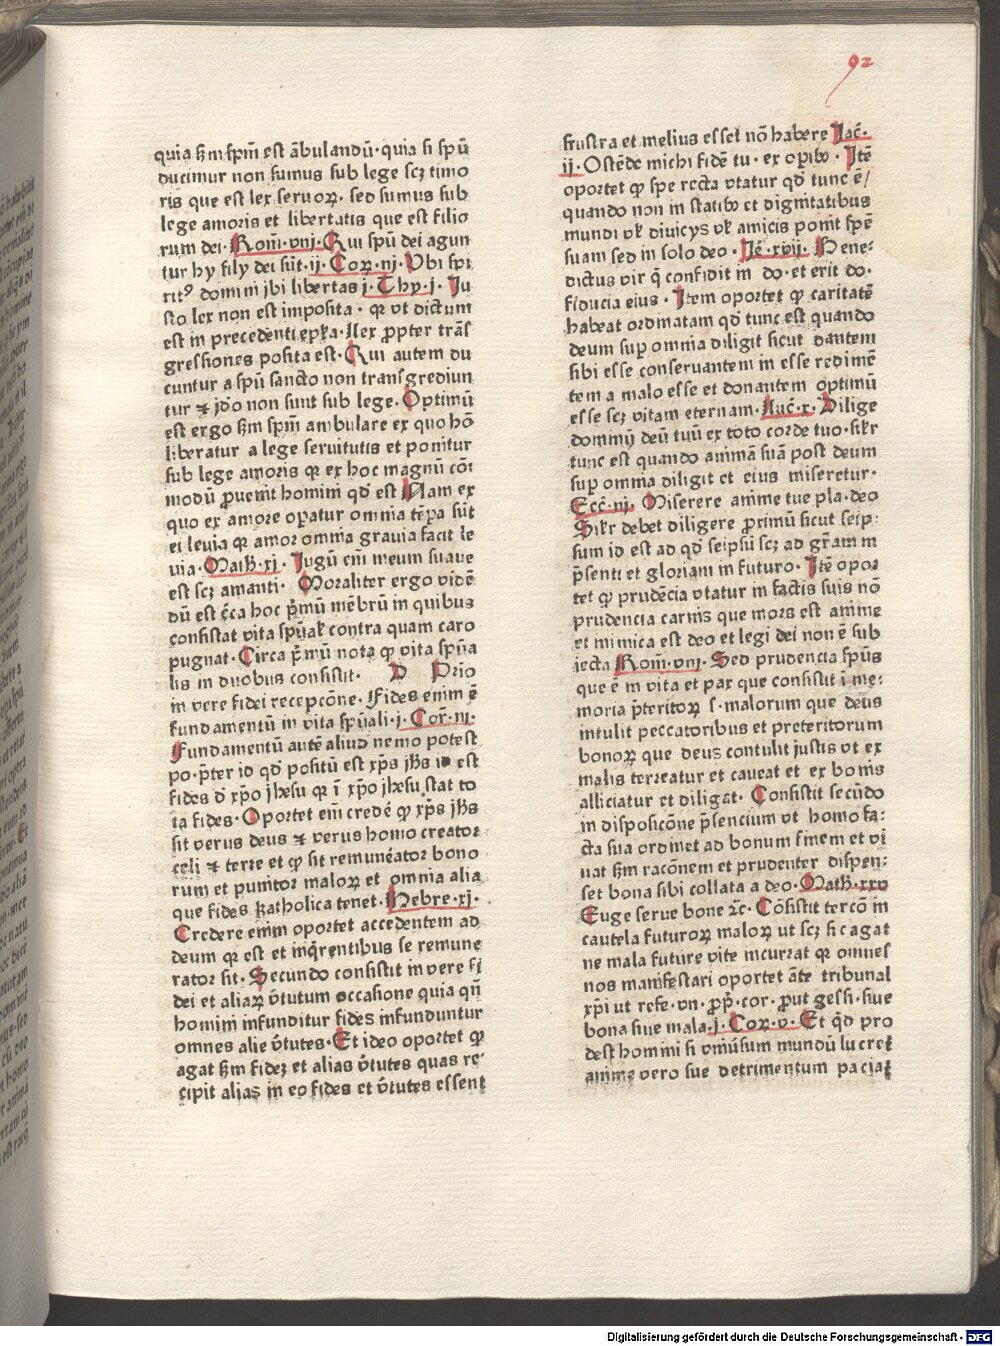 92
quia ſm ſpm̄ est ābulandū· quia ſi ſpū
ducimur non ſumus ſub lege ſcꝫ timo
ris que est lex ſeruoꝝ· ſed ſumus ſub
lege amoris et libertatis que est filio
rum dei· Rom̄·vnj· Qui ſpū dei agun
tur hy filÿ dei ſūt·ij·Coꝝ·nj· Vbi ſpi
ritꝰ domini jbi libertas j·Thy·j· Ju
ſto lex non est impoſita· qꝛ vt dictum
est in precedenti epꝉa· Nex ꝓpter trāſ
greſſiones poſita est· Qui autem du
cuntur a ſpū ſancto non tranſgrediun
tur ⁊ jdo non ſunt ſub lege· Optimū
est ergo ſm ſpm̄ ambulare ex quo hō
liberatur a lege ſeruitutis et ponitur
ſub lege amoris qꝛ ex hoc magnū cōi
modū ꝓuenit homini qd est Nam ex
quo ex amore oꝑatur omnia tꝑa ſūt
ei leuia qꝛ amor omnia grauia facit le
uia· Math̄·xj· Jugū eni meum ſuaue
est ſcꝫ amanti· Moraliter ergo vidē
dū est c̄ca hoc p̄mū mēbrū in quibus
conſiſtat vita ſpūaꝉ contra quam caro
pugnat· Circa p̄mū nota ꝙ vita ſpūa
lis in duobus conſiſtit· D Prio
in vere fidei recepcōne· Fides enim ē
fundamentū in vita ſpūali·j·Cor̄·nj·
Fundamentū autē aliud nemo potest
po·p̄ter id qd poſitū est xp̄s jh̄s id est
fides d xp̄o jheſu qꝛ ī xp̄o jheſu stat to
ta fides· Oportet eni credē ꝙ xp̄s jh̄s
ſit verus deus ⁊ verus homo creator
celi ⁊ terre et ꝙ ſit remunēator bono
rum et punitor maloꝝ et omnia alia
que fides katholica tenet· Hebre·xj·
Credere enim oportet accedentem ad
deum qꝛ est et inq̄rentibus ſe remune
rator ſit· Secundo conſiſtit in vere fi
dei et aliaꝝ v̄tutum occaſione quia qn̄
homini infunditur fides infunduntur
omnes alie v̄tutes· Et ideo oportet ꝙ
agat ſm fideꝫ et alias v̄tutes quas re
cipit alias in eo fides et v̄tutes eſſent
fruſtra et melius eſſet nō habere Jac̄·
ij· Oſtēde michi fidē tu· ex oꝑibꝰ· Jtē
oportet ꝙ ſpe recta vtatur qd tunc ē/
quando non in ſtatibꝰ et dignitatibus
mundi vꝉ diuicÿs vꝉ amicis ponit ſpē
ſuam ſed in ſolo deo· Je·xvij· Bene⸗
dictus vir q̄ confidit in do·et erit do·
fiducia eius· Item oportet ꝙ caritatē
habeat ordinatam qd tunc est quando
deum ſuꝑ omnia diligit ſicut dantem
ſibi eſſe conſeruantem in eſſe redimē
tem a malo eſſe et donantem optimū
eſſe ſcꝫ vitam eternam· Luc̄·x· Dilige
dominū deū tuū ex toto corde tuo·ſiꝉr
tunc est quando animā ſuā post deum
ſuꝑ omnia diligit et eius miſeretur·
Ecc̄·nj· Miſerere anime tue pla·deo
Siꝉr debet diligere ꝓximū ſicut ſeip⸗
ſum id est ad qd ſeipſū ſcꝫ ad gr̄am in
p̄ſenti et gloriam in futuro· Jtē opor
tet ꝙ prudēcia vtatur in factis ſuis nō
prudencia carnis que mors est anime
et inimica est deo et legi dei non ē ſub
iecta Rom̄·vnj· Sed prudencia ſpūs
que ē in vita et pax que conſiſtit ī me⸗
moria p̄teritoꝝ ſ·malorum que deus
intulit peccatoribus et preteritorum
bonoꝝ que deus contulit juſtis vt ex
malis terreatur et caueat et ex bonis
alliciatur et diligat· Conſiſtit ſecūdo
in diſpoſicōne p̄ſencium vt homo fa⸗
cta ſua ordinet ad bonum finem et vi
uat ſm racōnem et prudenter diſpen⸗
ſet bona ſibi collata a deo· Math̄·xxv
Euge ſerue bone ⁊c· Cōſiſtit tercō in
cautela futuroꝝ maloꝝ ut ſcꝫ ſic agat
ne mala future vite incurrat qꝛ omnes
nos manifeſtari oportet āte tribunal
xp̄i ut refe·vn·ꝓp̄·cor·ꝓut geſſi·ſiue
bona ſiue mala·j·Coꝝ·v· Et qd pro
deſt homini ſi vniūſum mundū lucret
anime vero ſue detrimentum paciat
Digitalisierung gefördert durch die Deutsche Forschungsgemeinschaft - DFG